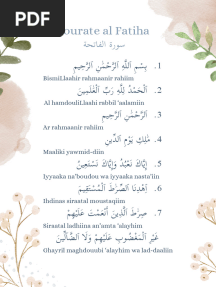 PDF
Sourate al Fatiha
سورة الفاتحة
1. بِسْمِ اللَّهِ الرَّحْمَٰنِ الرَّحِيمِ
Bismil.laahir rahmaanir rahiim
2. الْحَمْدُ لِلَّهِ رَبِّ الْعَٰلَمِينَ
Al hamdoulil.laahi rabbil 'aalamiin
3. الرَّحْمَٰنِ الرَّحِيمِ
Ar rahmaanir rahiim
4. مَٰلِكِ يَوْمِ الدِّينِ
Maaliki yawmid-diin
5. إِيَّاكَ نَعْبُدُ وَإِيَّاكَ نَسْتَعِينُ
Iyyaaka na'boudou wa iyyaaka nasta'iin
6. اهْدِنَا الصِّرَٰطَ الْمُسْتَقِيمَ
Ihdinas siraatal moustaqiim
7. صِرَٰطَ الَّذِينَ أَنْعَمْتَ عَلَيْهِمْ
Siraatal ladhiina an'amta 'alayhim
غَيْرِ الْمَغْضُوبِ عَلَيْهِمْ وَلَا الضَّالِّينَ
Ghayril maghdoubi 'alayhim wa lad-daaliin